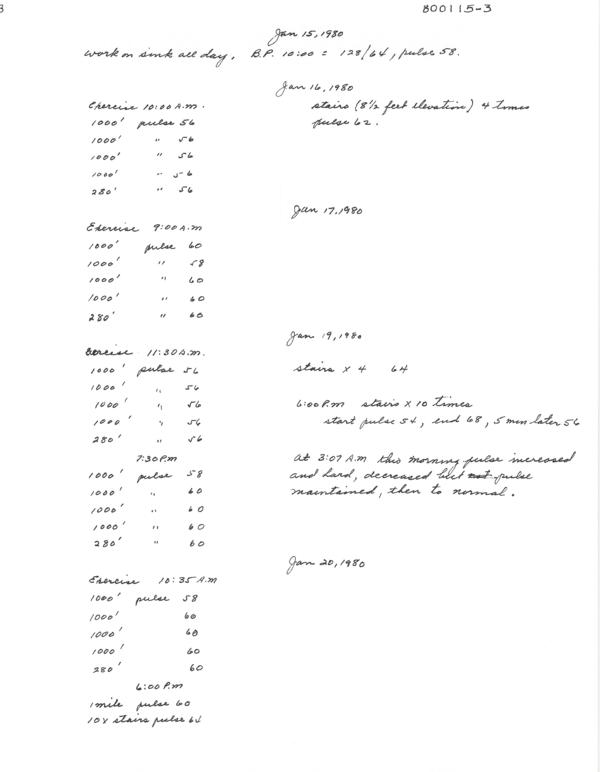 3
800115-3
Jan 15, 1980
work on sink all day. B.P. 10:00 = 128/64, pulse 58.
Jan 16, 1980
Exercise 10:00 A.M.
1000' pulse 56
1000' " 56
1000' " 56
1000' " 56
280' " 56
stairs (8 1/2 feet elevation) 4 times
pulse 62.
Jan 17, 1980
Exercise 9:00 A.M
1000' pulse 60
1000' " 58
1000' " 60
1000' " 60
280' " 60
Jan 19, 1980
Exercise 11:30 A.M.
1000' pulse 56
1000' " 56
1000' " 56
1000' " 56
280' " 56
7:30 P.M
1000' pulse 58
1000' " 60
1000' " 60
1000' " 60
280' " 60
stairs x 4 64
6:00 P.M stairs x 10 times
start pulse 54, end 68, 5 min later 56
At 3:07 A.M this morning pulse increased
and hard, decreased but not pulse
maintained, then to normal.
Jan 20, 1980
Exercise 10:35 A.M
1000' pulse 58
1000' 60
1000' 60
1000' 60
280' 60
6:00 P.M
1 mile pulse 60
10x stairs pulse 64